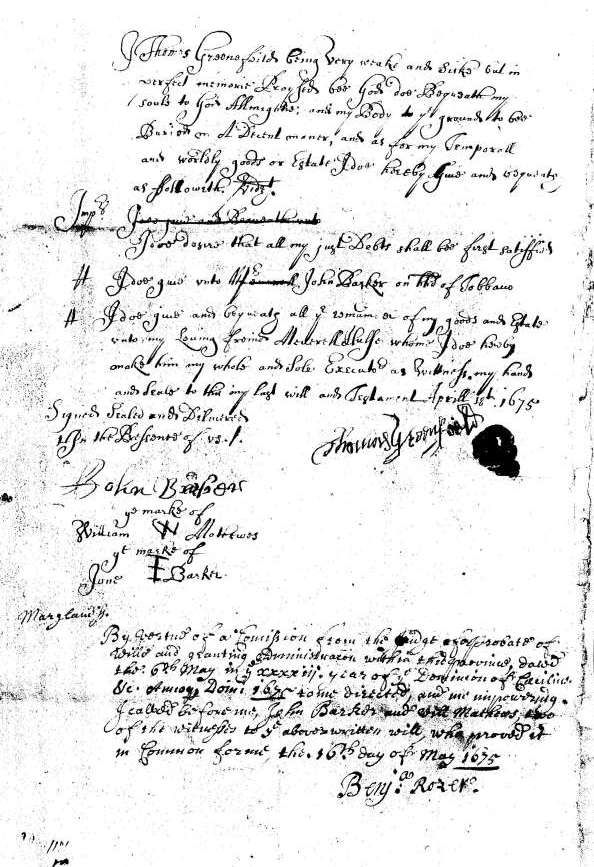 I Thomas Greenefeild being very weake and sicke but in
perfect memorie Praysed bee God doe Bequeath my
soule to God Allmightie; and my Body to ye ground to bee
Buried in A Decent maner, and as for my Temporall
and worldly goods or Estate I doe hereby Give and bequeath
as followeth Vidzt.
Imprs I doe give and Bequeath unto
I doe desire that all my just Debts shall bee first sattisfied
# I doe give unto John Barker on hhd of Tobbaco
# I doe give and bequeath all ye remainder of my goods and Estate
unto my Loving freind Meverell Hulse whome I doe hereby
make him my whole and Sole Executor as Wittness my hand
and Seale to this my last will and Testament Aprill 1675
Signed Sealed and Delivered
In the Presents of us
Thomas Greenfeild
John Barker
ye marke of
William W Mathewes
ye marke of
Jane I Barker
Maryland ss.
By vertue of a Comission from the Judge of probate of
Wills and granting Administracon within this province, dated
the 6th May in ye xxxxiii. yeare of ye Dominion of Cæcilius
&c. Annoq Domi 1675 to me directed, and me impowering.
I called before me, John Barker and Will Mathews, two
of the witnesses to ye above written will, who proved it
in Common forme the 16th day of May 1675
Benja Rozer.